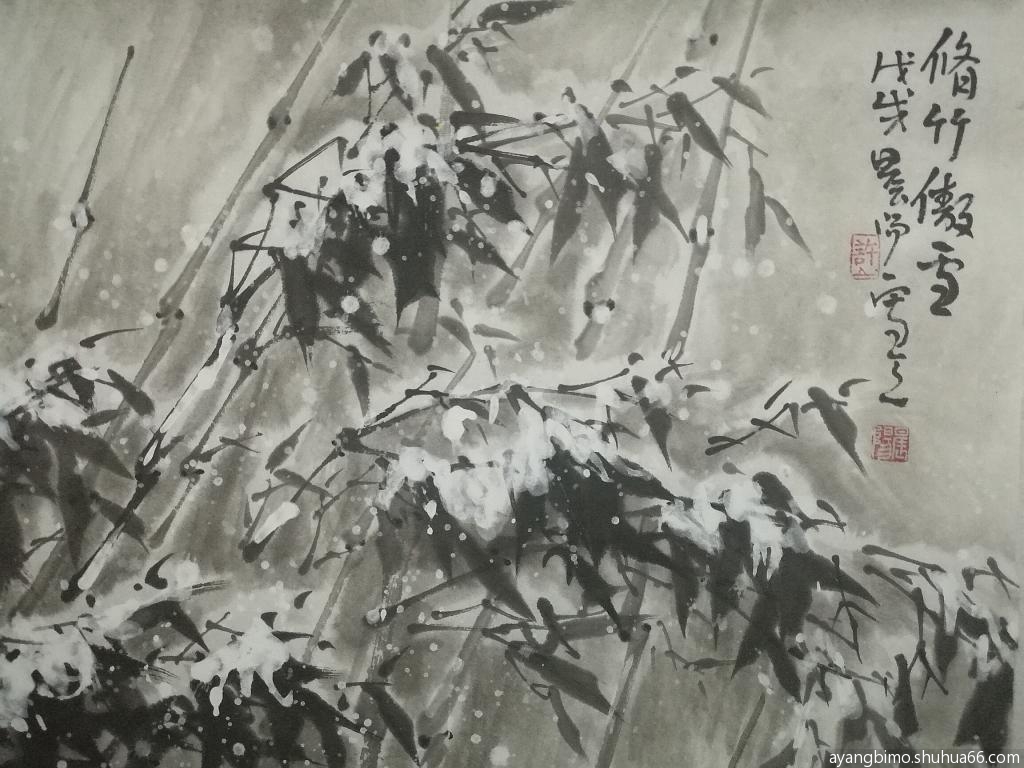 脩竹傲雪
戊戌景阳写之
許
景陽
ayangbimo.shuhua66.com